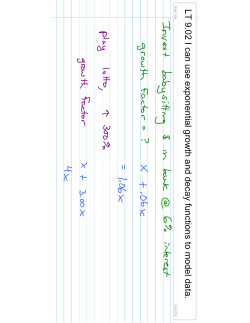 LT 9.02 I can use exponential growth and decay functions to model data.
Invest babysitting $ in bank @ 6% interest
growth factor = ?
x + .06x
= 1.06x
play lotto, ↑ 300%
growth factor
x + 3.00x
4x